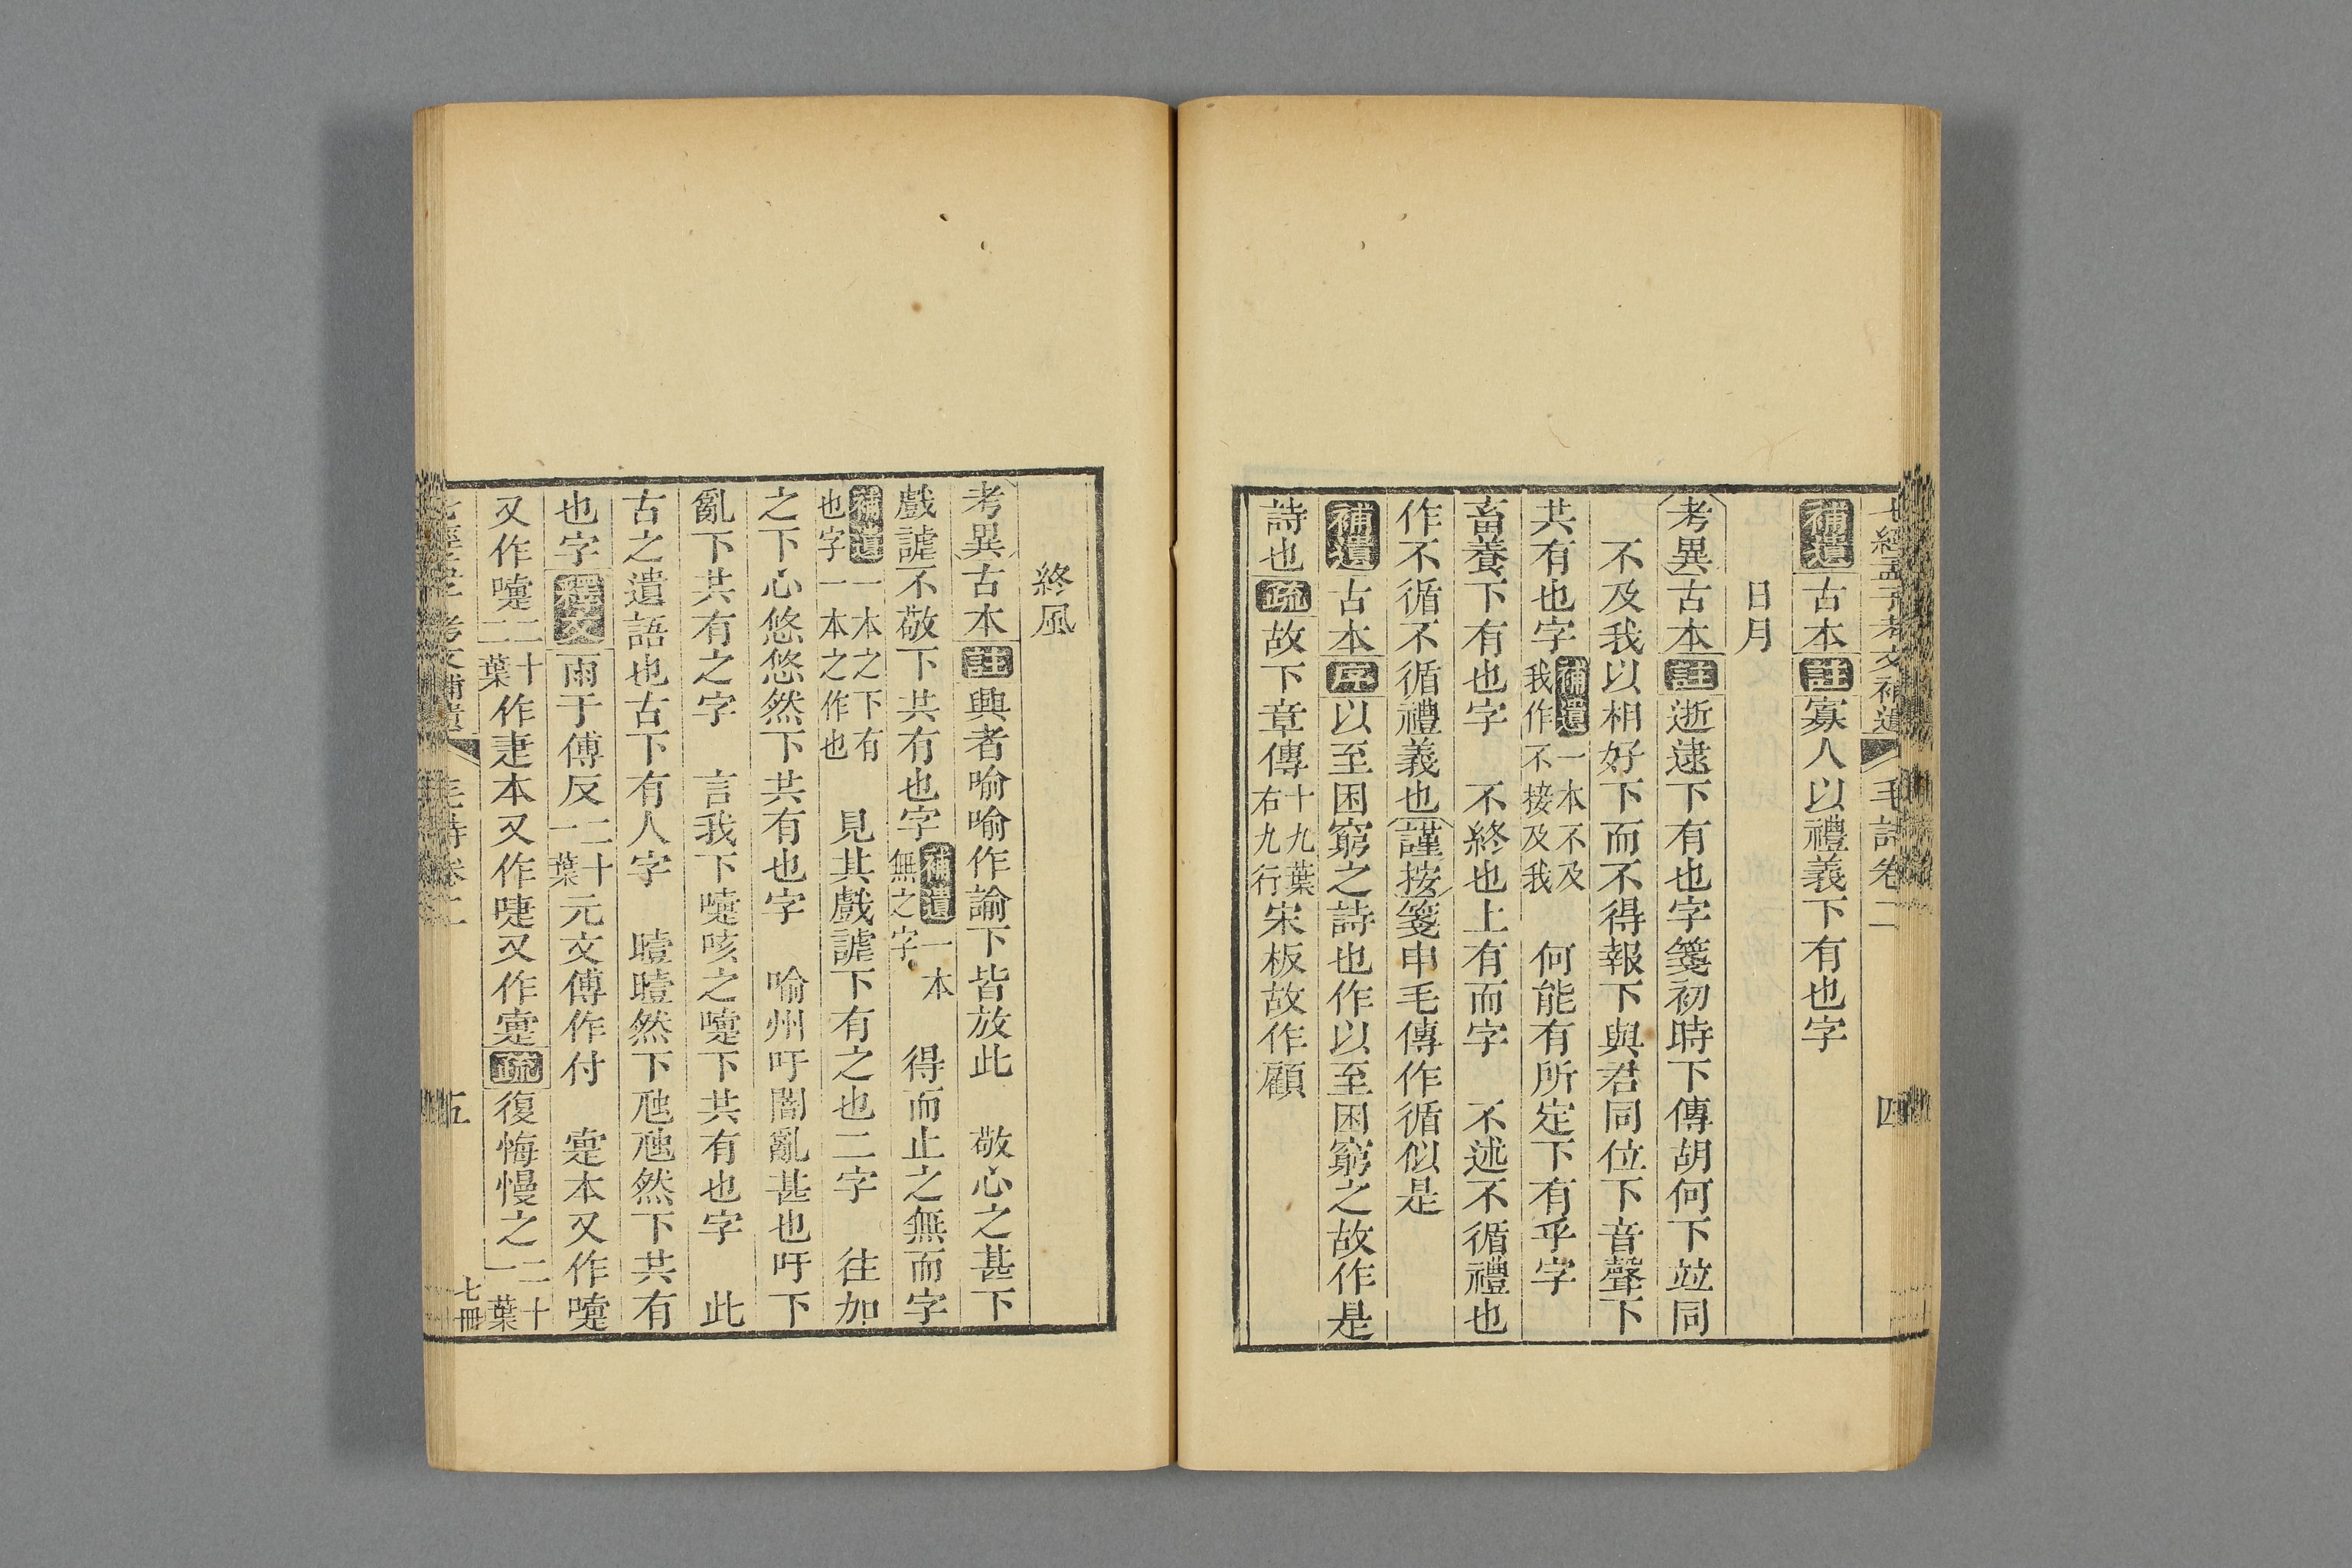 七經孟子考文補遺 毛詩卷二 四
補遺古本註寡人以禮義下有也字
日月
考異古本註逝逮下有也字箋初時下傳胡何下竝同
不及我以相好下而不得報下與君同位下音聲下
共有也字補遺一本不及我作不接及我 何能有所定下有乎字
畜養下有也字 不終也上有而字 不述不循禮也
作不循不循禮義也謹按箋申毛傳作循似是
補遺古本序以至困窮之詩也作以至困窮之故作是
詩也疏故下章傳十九葉右九行宋板故作顧
終風
考異古本註興者喻喻作諭下皆放此 敬心之甚下
戲謔不敬下共有也字補遺一本無之字 得而止之無而字
補遺一本之下有也字一本之作也 見其戲謔下有之也二字 往加
之下心悠悠然下共有也字 喻州吁闇亂甚也吁下
亂下共有之字 言我下嚏咳之嚏下共有也字 此
古之遺語也古下有人字 曀曀然下虺虺然下共有
也字釋文雨于傅反二十一葉元文傅作付 疌本又作嚏
又作嚔二十二葉作疌本又作啑又作疐疏復悔慢之二十一葉
七經孟子考文補遺 毛詩卷二 五 七冊